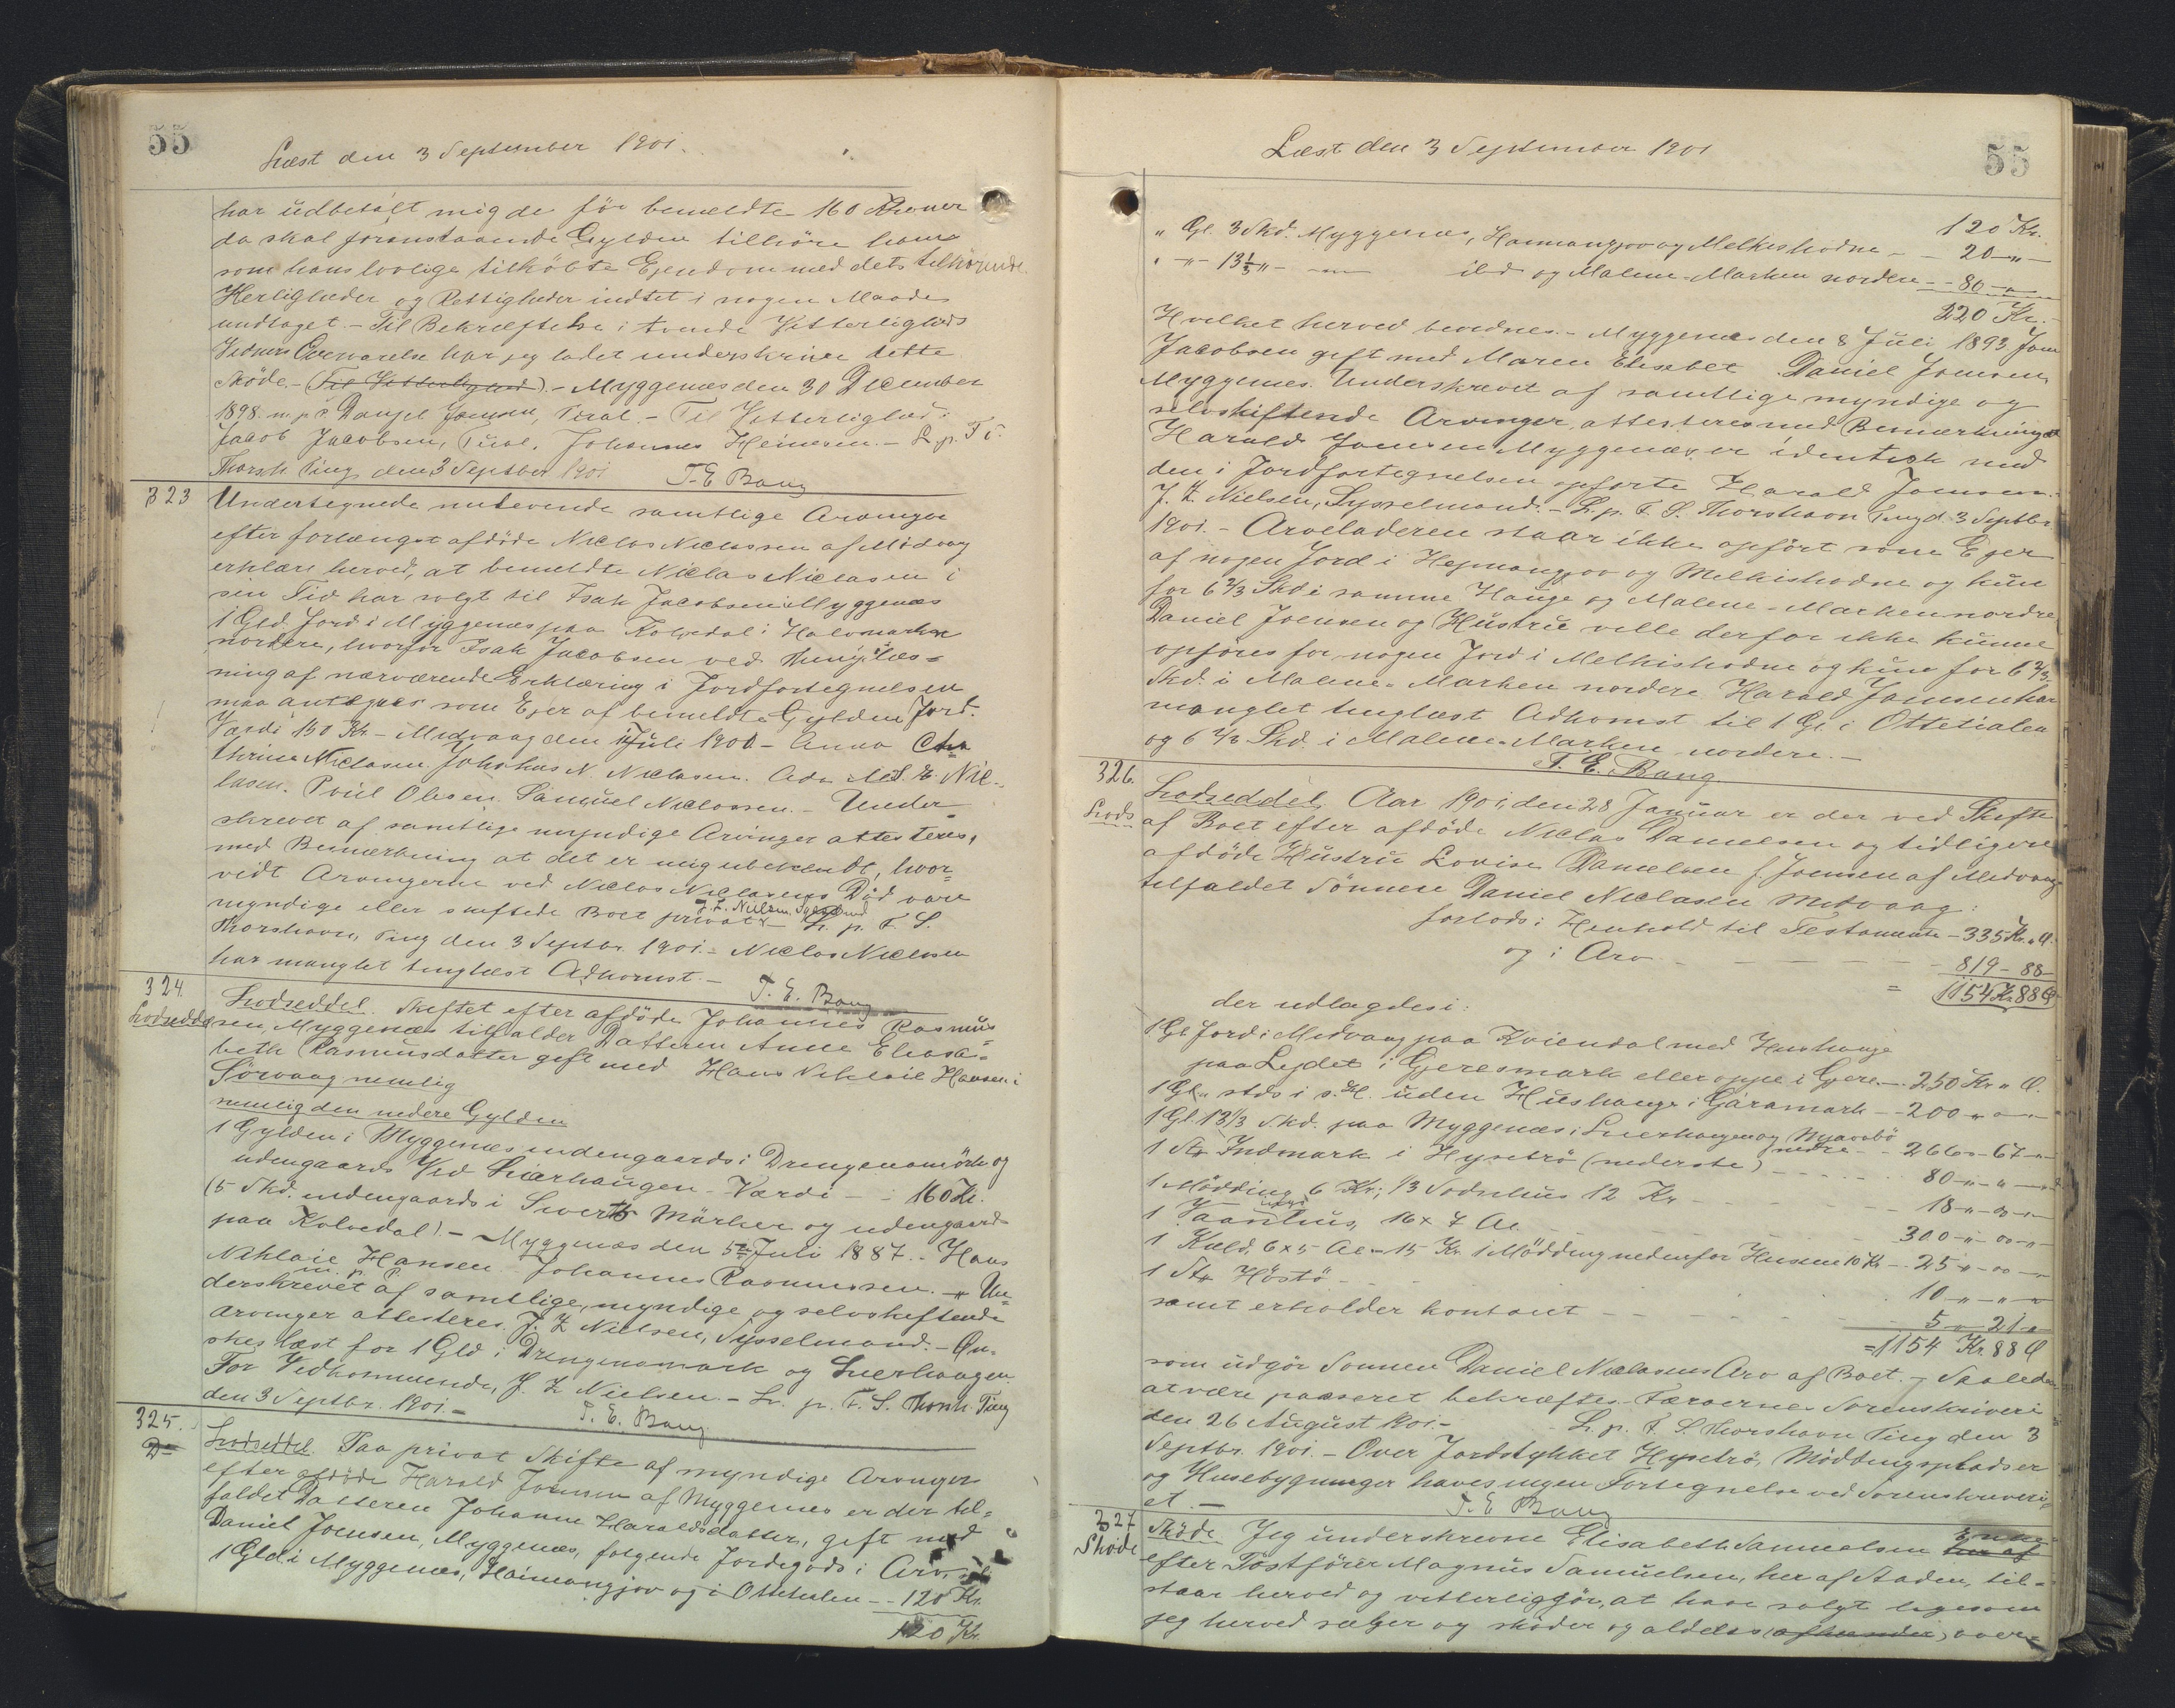 55
Læst den 3 September 1901.
har udbetalt mig de før bemeldte 160 Kroner
da skal foranstaaende Gylden tilhöre ham
som hans lovlige tilköbte Ejendom med dets tilhörende
Herligheder og Rettigheder indtet i nogen Maade
undtaget. - Til Bekræftelse i tvende Vitterligheds
Vidners Overværelse har jeg ladet underskrive dette
Sköde. - (Til Vitterlighed). - Myggenæs den 30 December
1898. m. p. P. Danjel Joensen, Tural. - Til Vitterlighed:
Jacob Jacobsen, Tural. Johannes Heinesen. - L. p. F. S.
Thorsh. Ting, den 3 Septber 1901. T. E. Bang
323 Undertegnede nulevende samtlige Arvinger
efter forlængst afdöde Niclas Niclassen af Midvaag
erklære herved, at bemeldte Niclas Niclasen i
sin Tid har solgt til Isak Jacobsen Myggenæs
1 Gld. Jord i Myggenæs paa Kolvedal i Halvmarken
nordere, hvorfor Isak Jacobsen ved Thinglæs=
ning af nærværende Erklæring i Jordfortegnelsen
maa antejnes som Ejer af bemeldte Gylden Jord.
Værdi 150 Kr - Midvaag den Juli 1901 - Anna Cha
thrine Niclasen. Johshus N. Niclasen. Ada M. S. E. Nic-
lasen. Poul Olesen. Samuel Niclassen. - Under
skrevet af samtlige myndige Arvinger attesteres,
med Bemærkning at det er mig ubekendt, hvor=
vidt Arvingerne ved Niclas Niclasens Död vare
myndige eller skiftede Boet privat. J. Z. Nielsen. Sysselmand L. p. F. S.
Thorshavn, Ting den 3 Septbr. 1901. - Niclas Niclasen
har manglet tinglæst Adkomst. - T. E. Bang
324.
Lodseddel Lodseddel. Skiftet efter afdöde Johannes Rasmus=
sen, Myggenæs tilfalder Datteren Anne Elisa=
beth Rasmusdatter gift med Hans Niklaie Hansen i
Sörvaag nemlig
nemlig den nedere Gylden
1 Gylden i Myggenæs indengaards i Drengenamörk og
udengaards Ved Liarhaugen - Værdi - 160 Kr.
(5 Skd. indengaards i Siverts Mörker og udengaards
paa Kolvedal). - Myggenæs den 5te Juli 1887. - Hans
Niklaie Hansen Johannes Rasmussen. - Un=
m. p. P.
derskrevet af samtlige, myndige og selvskiftende
arvinger attesteres. J. Z. Nielsen, Sysselmand. - Øn-
skes læst for 1 Gld i Drengenamark og Lierhaagen.
For Vedkommende, J. Z. Nielsen - L. p. F. S. Thorsh. Ting
den 3 Septbr. 1901. - T. E. Bang
325.
Do Lodseddel. Paa privat Skifte af myndige Arvinger
efter afdöde Harald Joensen af Myggenæs er der til=
faldet Datteren Johanne Haraldsdatter, gift med
Daniel Joensen, Myggenæs, følgende Jordegods i Arv.
1 Gld i Myggenæs, Haimangjov og i Ottetialen - - 120 Kr.
120 Kr.
55
Læst den 3 September 1901
120 Kr.
" Gl. 3 Skd. Myggenæs, Haimangjov og Melkishodne - - 20 - " -
" - " - 13 1/3 " - ild og Malene-Marken nordere - - 80 - " -
220 Kr.
Hvilket herved bevidnes. - Myggenæs den 8 Juli 1893. Joen
Jacobsen gift med Maren Elisebet. Daniel Joensen
Myggenæs. Underskrevet af samtlige myndige og
selvskiftende Arvinger, attesteres med Bemærkning at
Harald Joensen Myggenæs er identisk med
den i Jordfortegnelsen opførte Harald Joensen.
J. Z. Nielsen, Sysselmand. - L. p. F. S. Thorshavn Ting d. 3 Septbr.
1901. - Arveladeren staar ikke opfört som Ejer
af nogen Jord i Hejmangjov og Melkishodne og kun
for 6 2/3 Skd i samme Hauge og Malene-Marken nordre
Daniel Joensen og Hustru ville derfor ikke kunne
opføres for nogen Jord i Melkishodne og kun for 6 2/3
Skd. i Malene-Marken nordere Harald Joensen har
manglet tinglæst Adkomst til 1 Gl. i Ottetialen
og 6 2/3 Skd. i Malene-Marken nordere. -
T. E. Bang
326.
Lods Lodseddel. Aar 1901, den 28 Januar er der ved Skifte
af Boet efter afdöde Niclas Danielsen og tidligere
afdöde Hustru Lovise Danielsen f. Joensen af Midvaag
tilfaldet Sönnen Daniel Niclasen Midvaag:
forlods i Henhold til Testamente - 335 Kr. " Ø.
og i Arv - - - - 819 - 88 -
= 1154 Kr 88 Ø
der udlagdes i:
1 Gl Jord i Midvaag paa Kviendal med Hushauge
paa Lejdet i Gjeresmark eller oppe i Gjere - - 250 Kr " Ø.
1 Gl. " stds i s. H. uden Hushauge i Gáramark - - 200 " " "
1 Gl. 13 1/3 Skd. paa Myggenæs i Lierhaugen og Myarabö
nedre - - 266 " 67 "
1 Str Indmark i Hysetrö (nederste) - - - 80 - " - " -
1 Mödding 6 Kr; 1/3 Sodnhus 12 Kr - - - 18 - " - " -
1 Vaanhus, 16 x 7 Al. - - - 300 - " - " -
1 Kjeld, 6 x 5 Al - 15 Kr. 1 Mödding nedenfor Husene 10 Kr - - 25 - " - " -
1 Str Höstö - - - 10 - " - " -
samt erholder kontant - - - 5 - 21 "
= 1154 Kr. 88 Ø
som udgör Sönnen Daniel Niclasens Arv af Boet. - Saaledes
at være passeret bekræftes. Færøernes Sorenskriveri
den 26 August 1901. - L. p. F. S. Thorshavn Ting den 3
Septbr. 1901. - Over Jordstykket Hysetrö, Möddingspladser
og Husebygninger haves ingen Fortegnelse ved Sorenskriveri-
et. - T. E. Bang
327
Sköde Sköde. Jeg underskrevne Elisabeth Samuelsen her af Enke
efter Postförer Magnus Samuelsen, her af Staden, til=
staar herved og vitterliggör, at have solgt ligesom
jeg herved sælger og sköder og aldeles (afhænder) over=